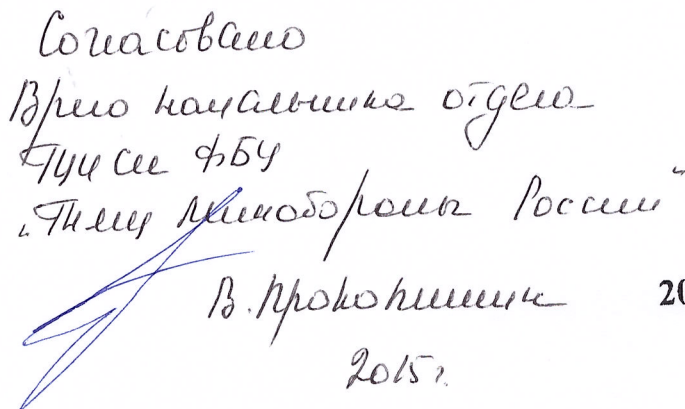 Согласовано
Врио начальника отдела
ГЦИ СИ ФБУ
„ГНМЦ Минобороны России"
В. Прокопишин
20
2015г.